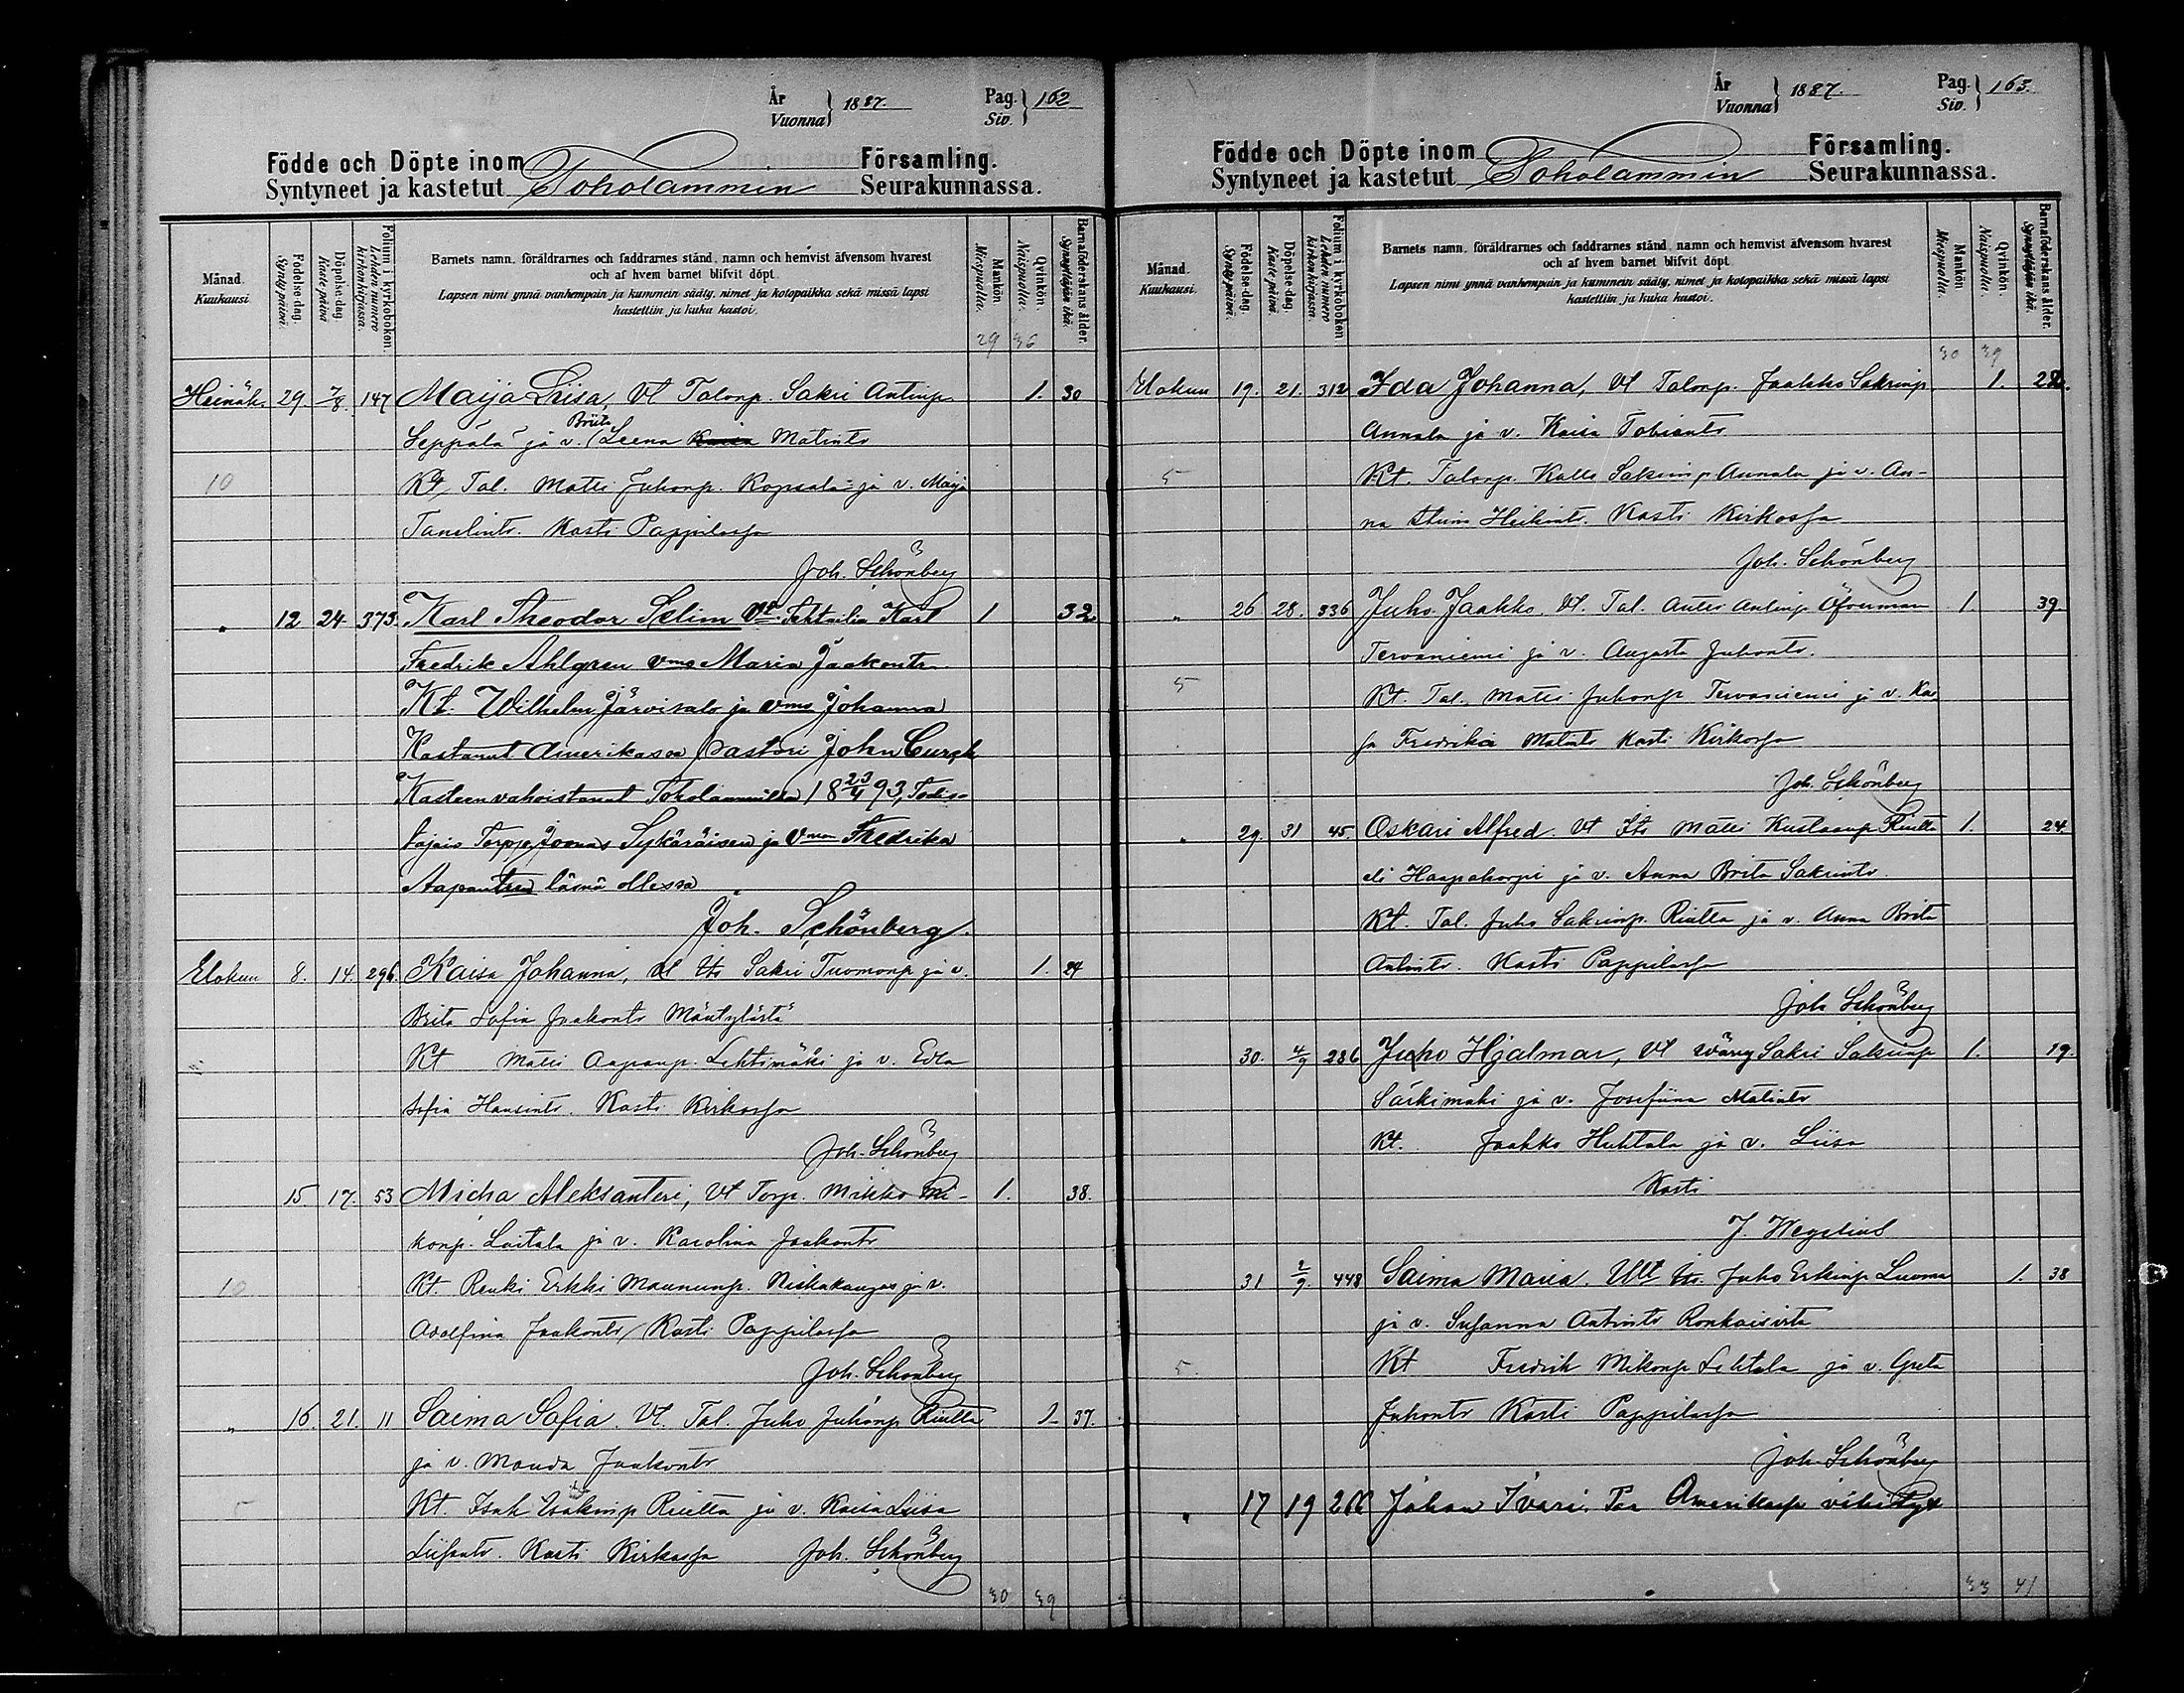 År
Vuonna } 1887.
Pag.
Siv. } 162
Födde och Döpte inom Församling.
Syntyneet ja kastetut Toholammin Seurakunnassa.
Månad. Kuukausi.
Födelse-dag. Synty-päivä.
Döpelse-dag. Kaste-päivä
Folium i kyrkoboken. Lehden numero kirkonkirjassa.
Barnets namn, föräldrarnes och faddrarnes stånd, namn och hemvist äfvensom hvarest
och af hvem barnet blifvit döpt.
Lapsen nimi ynnä vanhempain ja kummein sääty, nimet ja kotopaikka sekä missä lapsi
kastettiin ja kuka kastoi.
Mankön. Miespuolta.
Qvinkön. Naispuolta.
Barnaföderskans ålder. Synnyttäjän ikä.
29 36
Heinäk. 29 7/8 147 Maija Liisa, Vt Talonp. Sakri Antinp. 1. 30
Briita
Seppälä ja v. Leena Kaisa Matintr
10 Kt Tal. Matti Juhonp. Kopsala ja v. Maija
Tanelintr. Kasti Pappilassa
Joh. Schönberg
" 12 24. 373. Karl Theodor Selim Vt. Tehtailia Karl 1 32
Fredrik Ahlgren vmo Maria Jaakontr
Kt. Wilhelm Järvisalo ja vmo Johanna
Kastanut Amerikassa Pastori John Curgh
Kasteen vahvistanut Toholammilla 18 23/4 93, Todis-
tajain Torppa Joonas Sykäräisen ja Vmon Fredrika
Aapontren läsnä ollessa
Joh. Schönberg.
Elokuu 8. 14. 296. Kaisa Johanna, Vt Its Sakri Tuomonp ja v. 1. 24
Brita Sofia Jaakontr Mäntylästä
Kt Matti Aapanp. Lehtimäki ja v. Edla
Sofia Hansintr. Kasti Kirkossa
Joh. Schönberg
15. 17. 53 Micha Aleksanteri, Vt Torp. Mikko Mi- 1. 38.
konp. Laitala ja v. Karolina Jaakontr
10 Kt. Renki Erkki Maununp. Niskakangas ja v.
Adolfina Jaakontr Kasti Pappilassa
Joh. Schönberg
" 16. 21. 11 Saima Sofia. Vt. Tal. Juho Juhonp Riutta 1. 37.
ja v. Manda Jaakontr
5 Kt. Isak Isakinp Riutta ja v. Kaisa Liisa
Liisantr. Kasti Kirkossa Joh. Schönberg
30 39
År
Vuonna } 1887.
Pag.
Siv. } 163.
Födde och Döpte inom Församling.
Syntyneet ja kastetut Toholammin Seurakunnassa.
Månad. Kuukausi.
Födelse-dag. Synty-päivä.
Döpelse-dag. Kaste-päivä.
Folium i kyrkoboken Lehden numero kirkonkirjassa.
Barnets namn, föräldrarnes och faddrarnes stånd, namn och hemvist äfvensom hvarest
och af hvem barnet blifvit döpt.
Lapsen nimi ynnä vanhempain ja kummein sääty, nimet ja kotopaikka sekä missä lapsi
kastettiin ja kuka kastoi.
Mankön. Miespuolta.
Qvinkön. Naispuolta.
Barnaföderskans ålder. Synnyttäjän ikä.
30 39
Elokuu 19. 21. 312 Ida Johanna, Vt Talonp. Jaakko Sakrinp. 1.
Annala ja v. Kaisa Tobiantr
5 Kt. Talonp. Kalle Sakrinp Annala ja v. An-
na Heikintr. Kasti Kirkossa
Joh. Schönberg
" 26 28. 336 Juho Jaakko. Vt. Tal. Antti Antinp Öfverman 1. 39.
Tervaniemi ja v. Augusta Juhontr.
5 Kt. Tal. Matti Juhonp Tervaniemi ja v. Kai
sa Fredrika Matintr Kasti Kirkossa
Joh. Schönberg
" 29. 31 45. Oskari Alfred. Vt Its Matti Kustaanp Riutta 1. 24
eli Haapakorpi ja v. Anna Brita Sakrintr.
Kt. Tal. Juho Sakrinp. Riutta ja v. Anna Brita
Antintr. Kasti Pappilassa
Joh Schönberg
30. 4/9 286 Juho Hjalmar, Vt Sakri Sakrinp 1. 19.
Särkimäki ja v. Josefiina Matintr
Kt. Jaakko Huhtala ja v. Liisa
Kasti
J. Wegelius
31 2/9. 448 Saima Maria. Vtt Its. Juho Erkinp Luoma 1. 38
ja v. Susanna Antintr Ronkaisista
5. Kt Fredrik Mikonp Lehtala ja v. Greta
Juhontr Kasti Pappilassa
Joh. Schönberg
" 17 19 266 Johan Ivari.
33 41